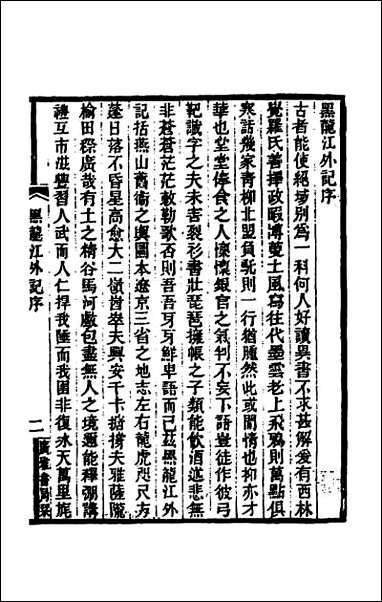 黑龍江外記序
古者能使絕域別爲一科何人好讀異書不求甚解爰有西林
覺羅氏善擇政暇溥蒐土風寫往代墨雲老上飛鴉則萬點俱
寒話幾家青柳北盟負駝則一行猶腌然此或閒情也抑亦才
華也堂堂侍食之人懍懍銀官之氣判不妄下語豈徒作彼弓
靶識字之夫未害裂衫書壯琵琶擁帳之子類能飲酒道悲無
非蒼蒼茫茫敕勒歌否則吾吾牙牙鮮卑語而已茲黑龍江外
記括燕山舊衞之輿圖本遼京三省之地志左右龍虎咫尺方
蓬日落不昏星高愈大二嶺酋舉夫興安千卡揹搒夫雅薩隴
榆田穄廣哉有土之精谷馬河獻包盡無人之境邇能釋弸講
禮互市滋豐習人武而人仁捍我陲而我圉非復冰天萬里旄
黑龍江外記序
一
廣雅書局栞